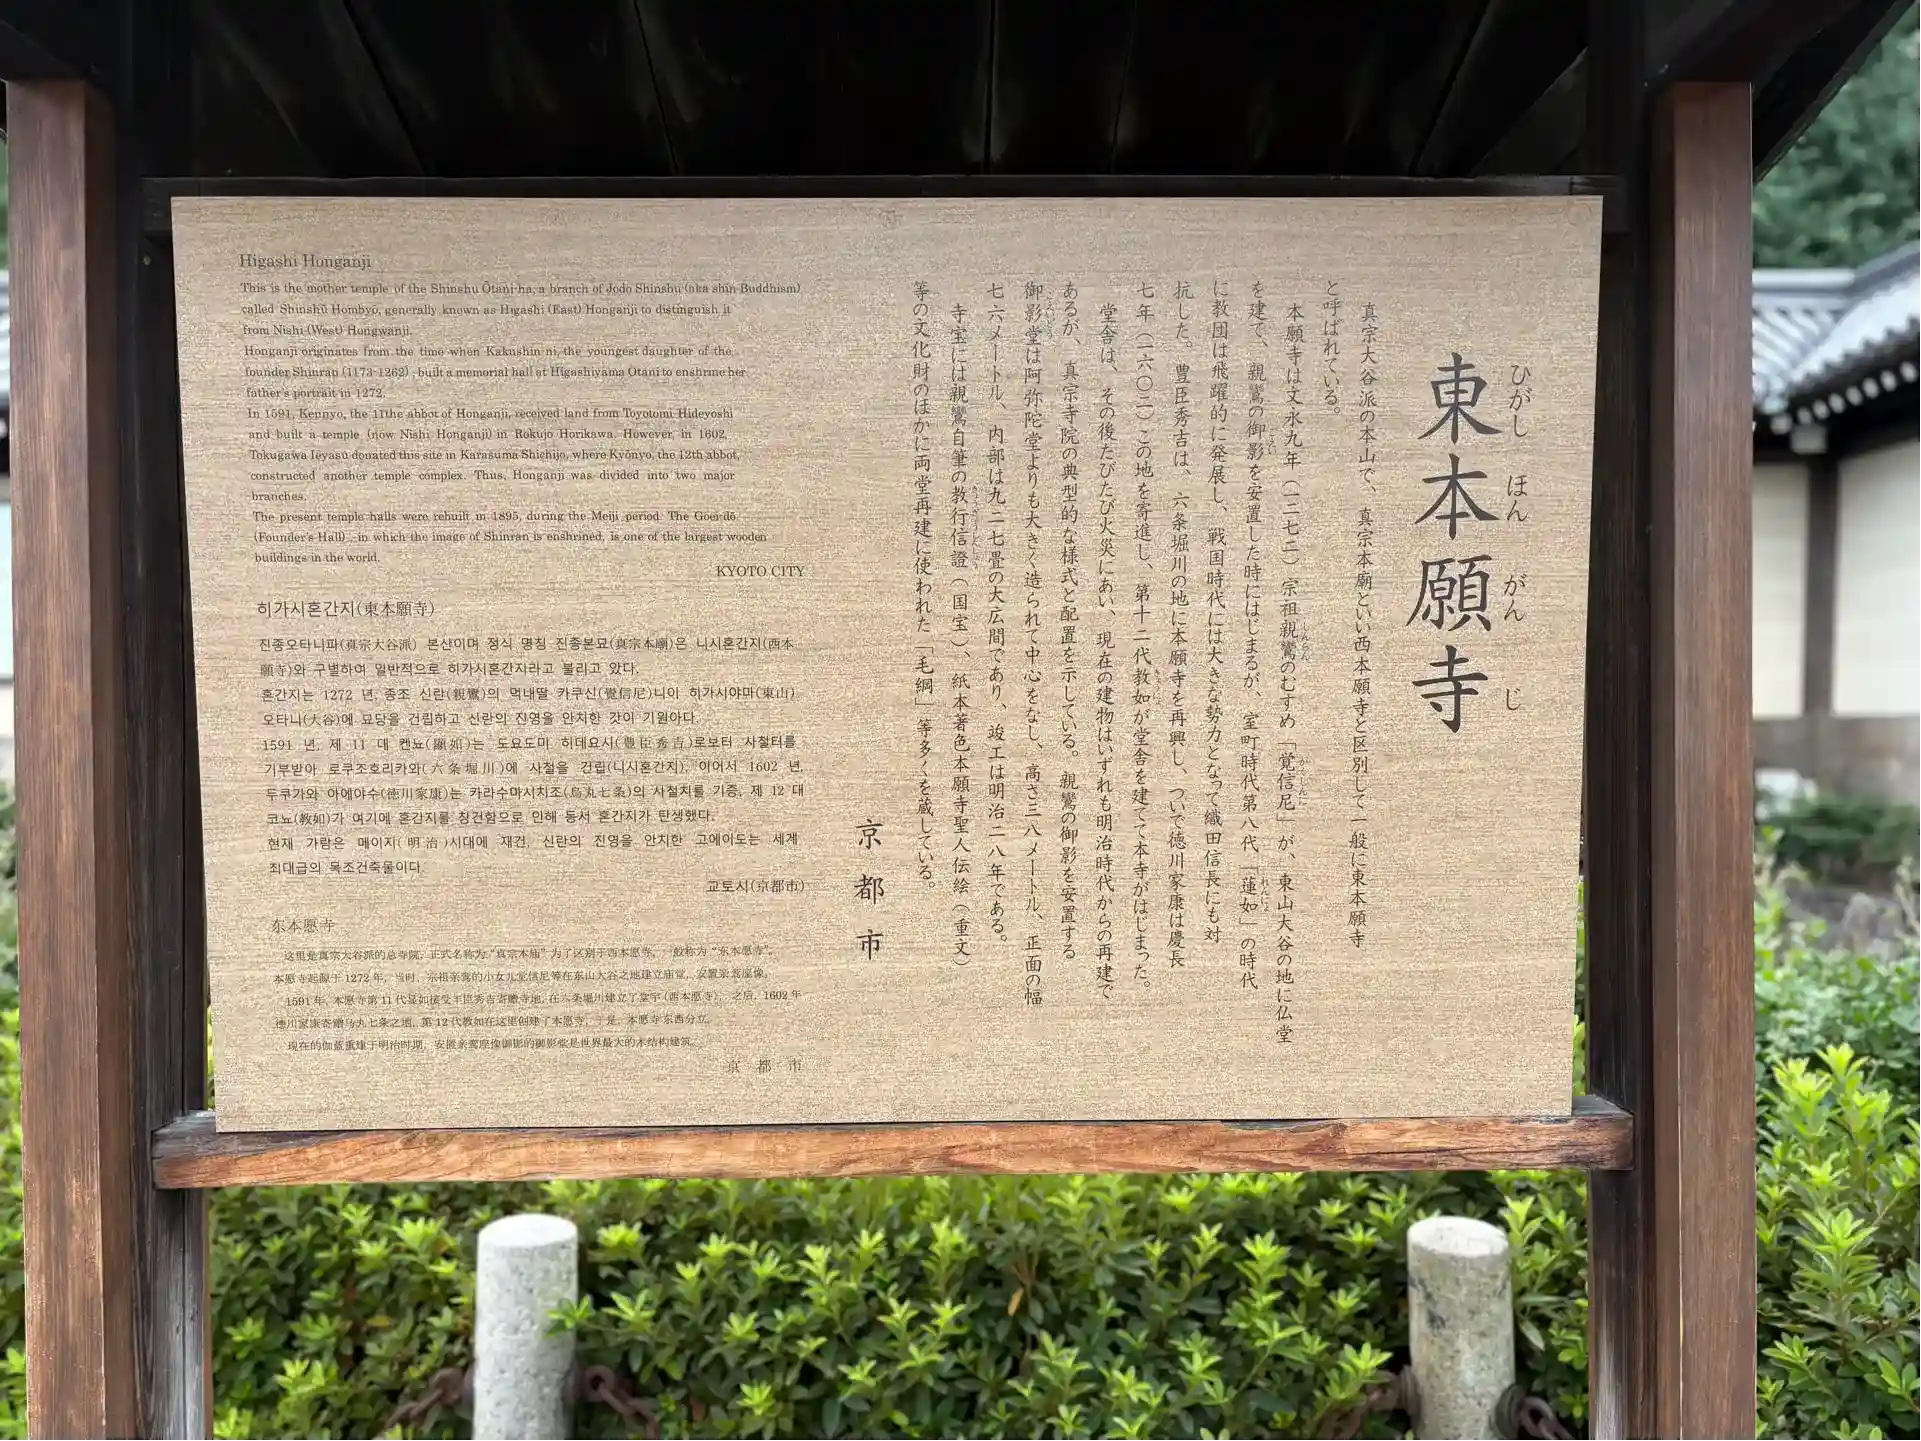 東本願寺
ひがし ほん がん じ
真宗大谷派の本山で、真宗本廟といい西本願寺と区別して一般に東本願寺
と呼ばれている。
本願寺は文永九年(一二七二)宗祖親鸞のむすめ「覚信尼」が、東山大谷の地に仏堂
しんらん かくしんに
を建て、親鸞の御影を安置した時にはじまるが、室町時代第八代「蓮如」の時代
ごえい れんにょ
に教団は飛躍的に発展し、戦国時代には大きな勢力となって織田信長にも対
抗した。豊臣秀吉は、六条堀川の地に本願寺を再興し、ついで徳川家康は慶長
七年(一六〇二)この地を寄進し、第十二代教如が堂舎を建てて本寺がはじまった。
きょうにょ
堂舎は、その後たびたび火災にあい、現在の建物はいずれも明治時代からの再建で
あるが、真宗寺院の典型的な様式と配置を示している。親鸞の御影を安置する
御影堂は阿弥陀堂よりも大きく造られて中心をなし、高さ三八メートル、正面の幅
ごえいどう
七六メートル、内部は九二七畳の大広間であり、竣工は明治二八年である。
寺宝には親鸞自筆の教行信證(国宝)、紙本著色本願寺聖人伝絵(重文)
きょうぎょうしんしょう
等の文化財のほかに両堂再建に使われた「毛綱」等多くを蔵している。
京都市
Higashi Honganji
This is the mother temple of the Shinshu Ōtani-ha, a branch of Jodo Shinshu (aka shin Buddhism)
called Shinshū Hombyō, generally known as Higashi (East) Honganji to distinguish it
from Nishi (West) Hongwanji.
Honganji originates from the time when Kakushin ni, the youngest daughter of the
founder Shinran (1173-1262), built a memorial hall at Higashiyama Otani to enshrine her
father's portrait in 1272.
In 1591, Kennyo, the 11the abbot of Honganji, received land from Toyotomi Hideyoshi
and built a temple (now Nishi Honganji) in Rokujo Horikawa. However, in 1602,
Tokugawa Ieyasu donated this site in Karasuma Shichijo, where Kyōnyo, the 12th abbot,
constructed another temple complex. Thus, Honganji was divided into two major
branches.
The present temple halls were rebuilt in 1895, during the Meiji period. The Goei-dō
(Founder's Hall), in which the image of Shinran is enshrined, is one of the largest wooden
buildings in the world.
KYOTO CITY
히가시혼간지(東本願寺)
진종오타니파(真宗大谷派) 본산이며 정식 명칭 진종본묘(真宗本廟)은 니시혼간지(西本
願寺)와 구별하여 일반적으로 히가시혼간자라고 불리고 있다.
혼간지는 1272 년, 종조 신란(親鸞)의 막내딸 카쿠신(覺信尼)니이 히가시야마(東山)
오타니(大谷)에 묘당을 건립하고 신란의 진영을 안치한 것이 기원아다.
1591 년, 제 11 대 켄뇨(顯如)는 도요도미 히데요시(豊臣秀吉)로부터 사찰터를
기부받아 로쿠조호리카와(六条堀川)에 사철을 건립(니시혼간지), 이어서 1602 년,
두쿠가와 아에야수(徳川家康)는 카라수마시치조(烏丸七条)의 사철지를 기증, 제 12 대
코뇨(教如)가 여기에 혼간지를 창건함으로 인해 동서 혼간지가 탄생했다.
현재 가람은 메이지(明治)시대에 재건, 신란의 진영을 안치한 고에이도는 세계
최대급의 목조건축물이다.
교토시(京都市)
东本愿寺
这里是真宗大谷派的总寺院, 正式名称为"真宗本庙"为了区别于西本愿寺, 一般称为"东本愿寺"。
本愿寺起源于 1272 年, 当时, 宗祖亲鸾的小女儿觉信尼等在东山大谷之地建立庙堂, 安置亲鸾座像。
1591 年, 本愿寺第 11 代显如接受丰臣秀吉寄赠寺地, 在六条堀川建立了堂宇(西本愿寺), 之后, 1602 年
德川家康寄赠乌丸七条之地, 第 12 代教如在这里创建了本愿寺, 于是, 本愿寺东西分立。
现在的伽蓝重建于明治时期, 安置亲鸾座像御影的御影堂是世界最大的木结构建筑。
京都市